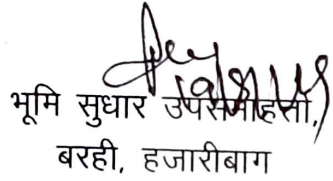 भूमि सुधार उपसमाहर्ता,
बरही, हजारीबाग